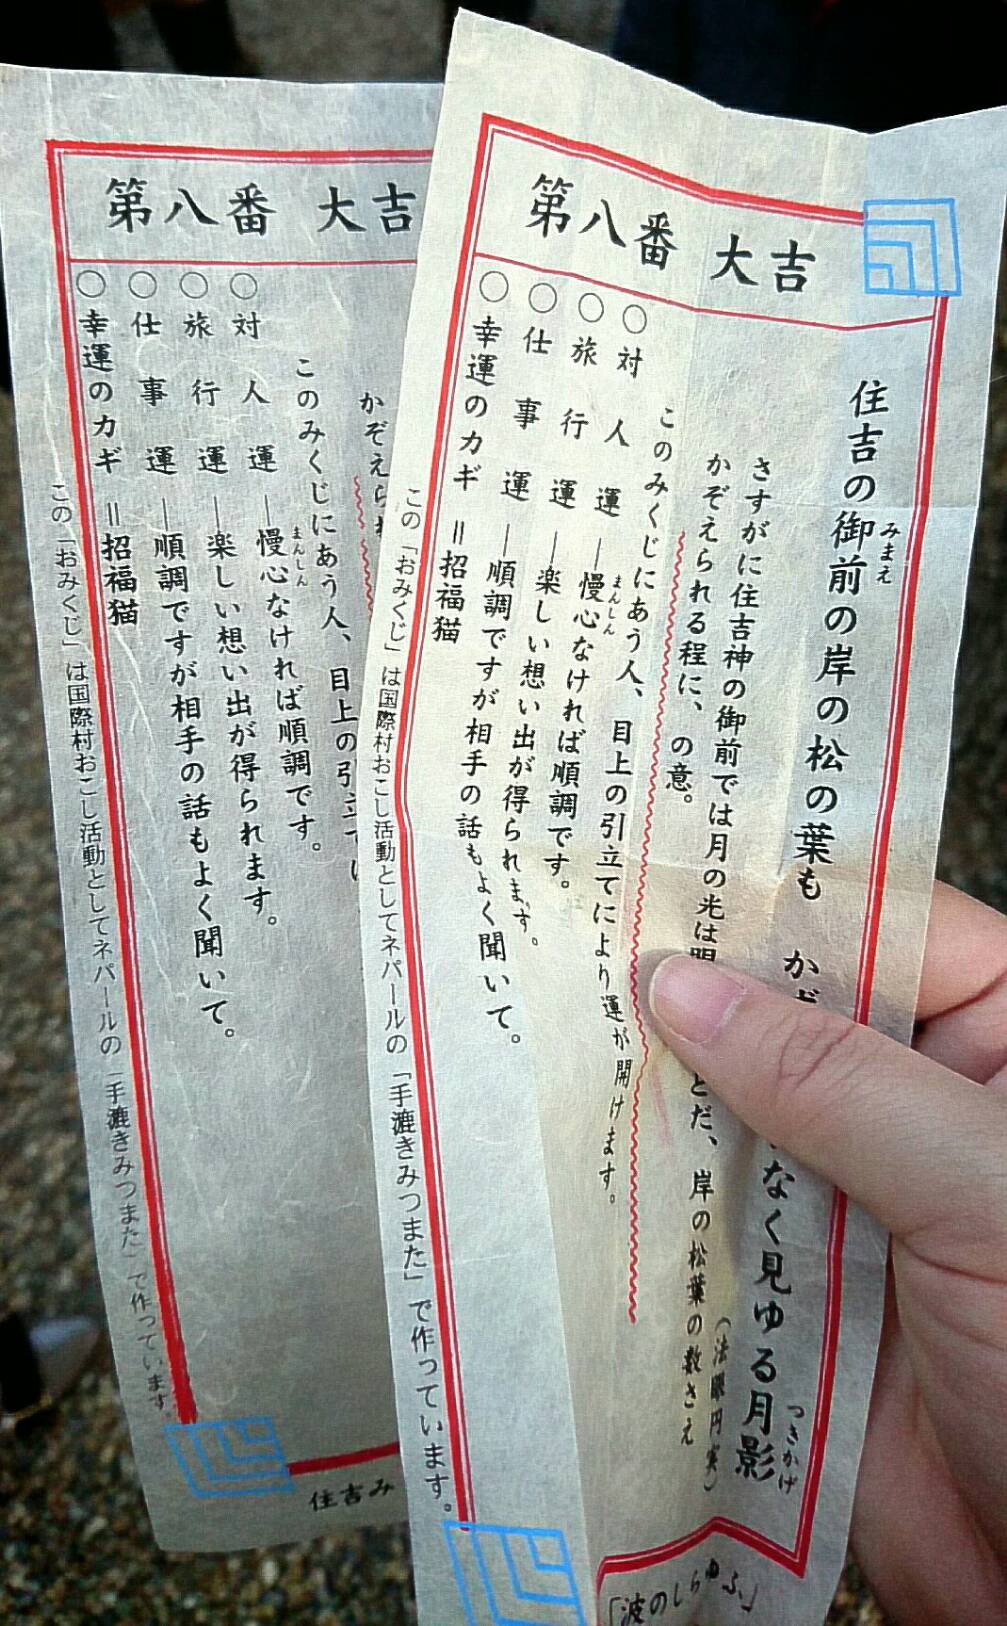 第八番 大吉
住吉の御前の岸の松の葉も か
みまえ
なく見ゆる月影
つきかげ
(法眼円実)
さすがに住吉神の御前では月の光は
とだ、岸の松葉の数さえ
かぞえられる程に、の意。
このみくじにあう人、目上の引立てにより運が開けます。
○対人運―慢心なければ順調です。
まんしん
○旅行運―楽しい想い出が得られます。
○仕事運―順調ですが相手の話もよく聞いて。
○幸運のカギ=招福猫
この「おみくじ」は国際村おこし活動としてネパールの「手漉きみつまた」で作っています。
「波のしらゆふ」
第八番 大吉
かぞえら
このみくじにあう人、目上の引立て
○対人運―慢心なければ順調です。
まんしん
○旅行運―楽しい想い出が得られます。
○仕事運―順調ですが相手の話もよく聞いて。
○幸運のカギ=招福猫
この「おみくじ」は国際村おこし活動としてネパールの「手漉きみつまた」で作っています。
住吉み